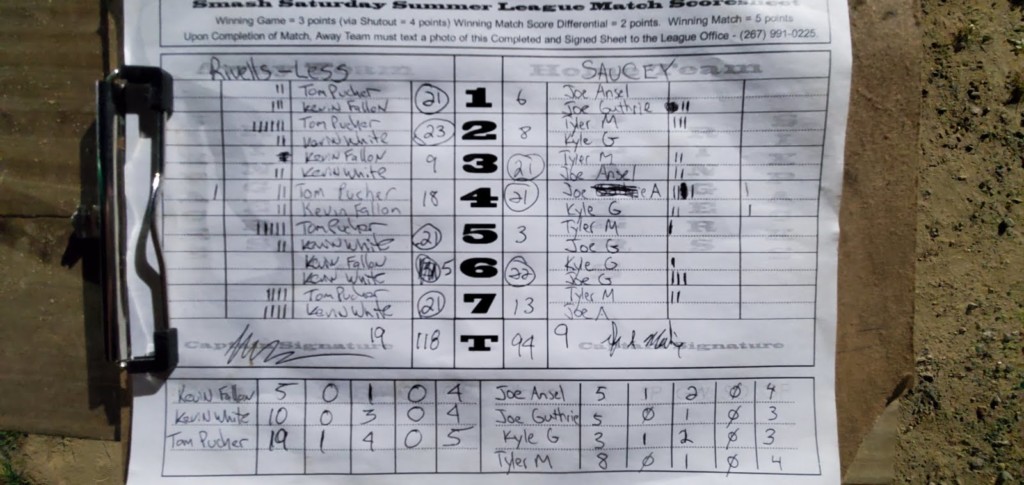 Smash Saturday Summer League Match Scoresheet
Winning Game = 3 points (via Shutout = 4 points) Winning Match Score Differential = 2 points. Winning Match = 5 points
Upon Completion of Match, Away Team must text a photo of this Completed and Signed Sheet to the League Office - (267) 991-0225.
Rivells-Less SAUCEY
II Tom Pucher 21 1 6 Joe Ansel
III Kevin Fallon Joe Guthrie II
IIIIII Tom Pucher 23 2 8 Tyler M III
II Kevin White Kyle G
Kevin Fallon 9 3 21 Tyler M II
II Kevin White Joe Ansel II
I II Tom Pucher 18 4 21 Joe A I
II Kevin Fallon Kyle G II I
IIIII Tom Pucher 21 5 3 Tyler M I
II Kevin White Joe G
Kevin Fallon 5 6 22 Kyle G I
Kevin White Joe G III
IIII Tom Pucher 21 7 13 Tyler M II
IIII Kevin White Joe A
Captain Signature 19 118 T 94 9 Captain Signature
Kevin Fallon 5 0 1 0 4 Joe Ansel 5 1 2 0 4
Kevin White 10 0 3 0 4 Joe Guthrie 5 0 1 0 3
Tom Pucher 19 1 4 0 5 Kyle G 3 1 2 0 3
Tyler M 8 0 1 0 4